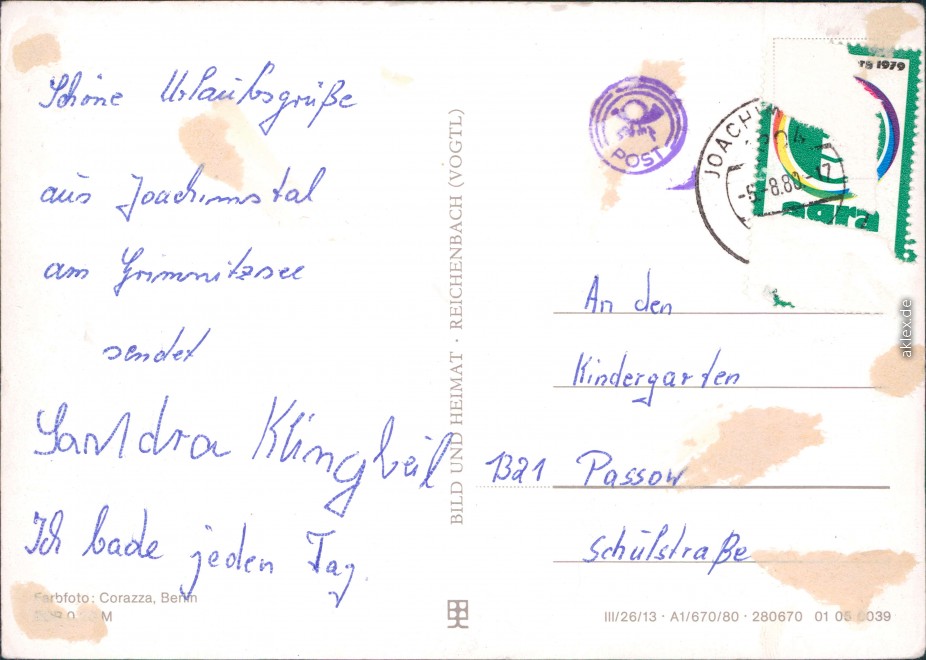 Schöne Urlaubsgrüße
aus Joachimstal
am Grimnitzsee
sendet
Sandra Klingbeil
Ich bade jeden Tag
Farbfoto: Corazza, Berlin
M
BILD UND HEIMAT · REICHENBACH (VOGTL)
POST
JOACHIM
-8.80.-17
1979
agra
An den
Kindergarten
1321 Passow
Schulstraße
III/26/13 · A1/670/80 · 280670 01 05 0039
aklex.de